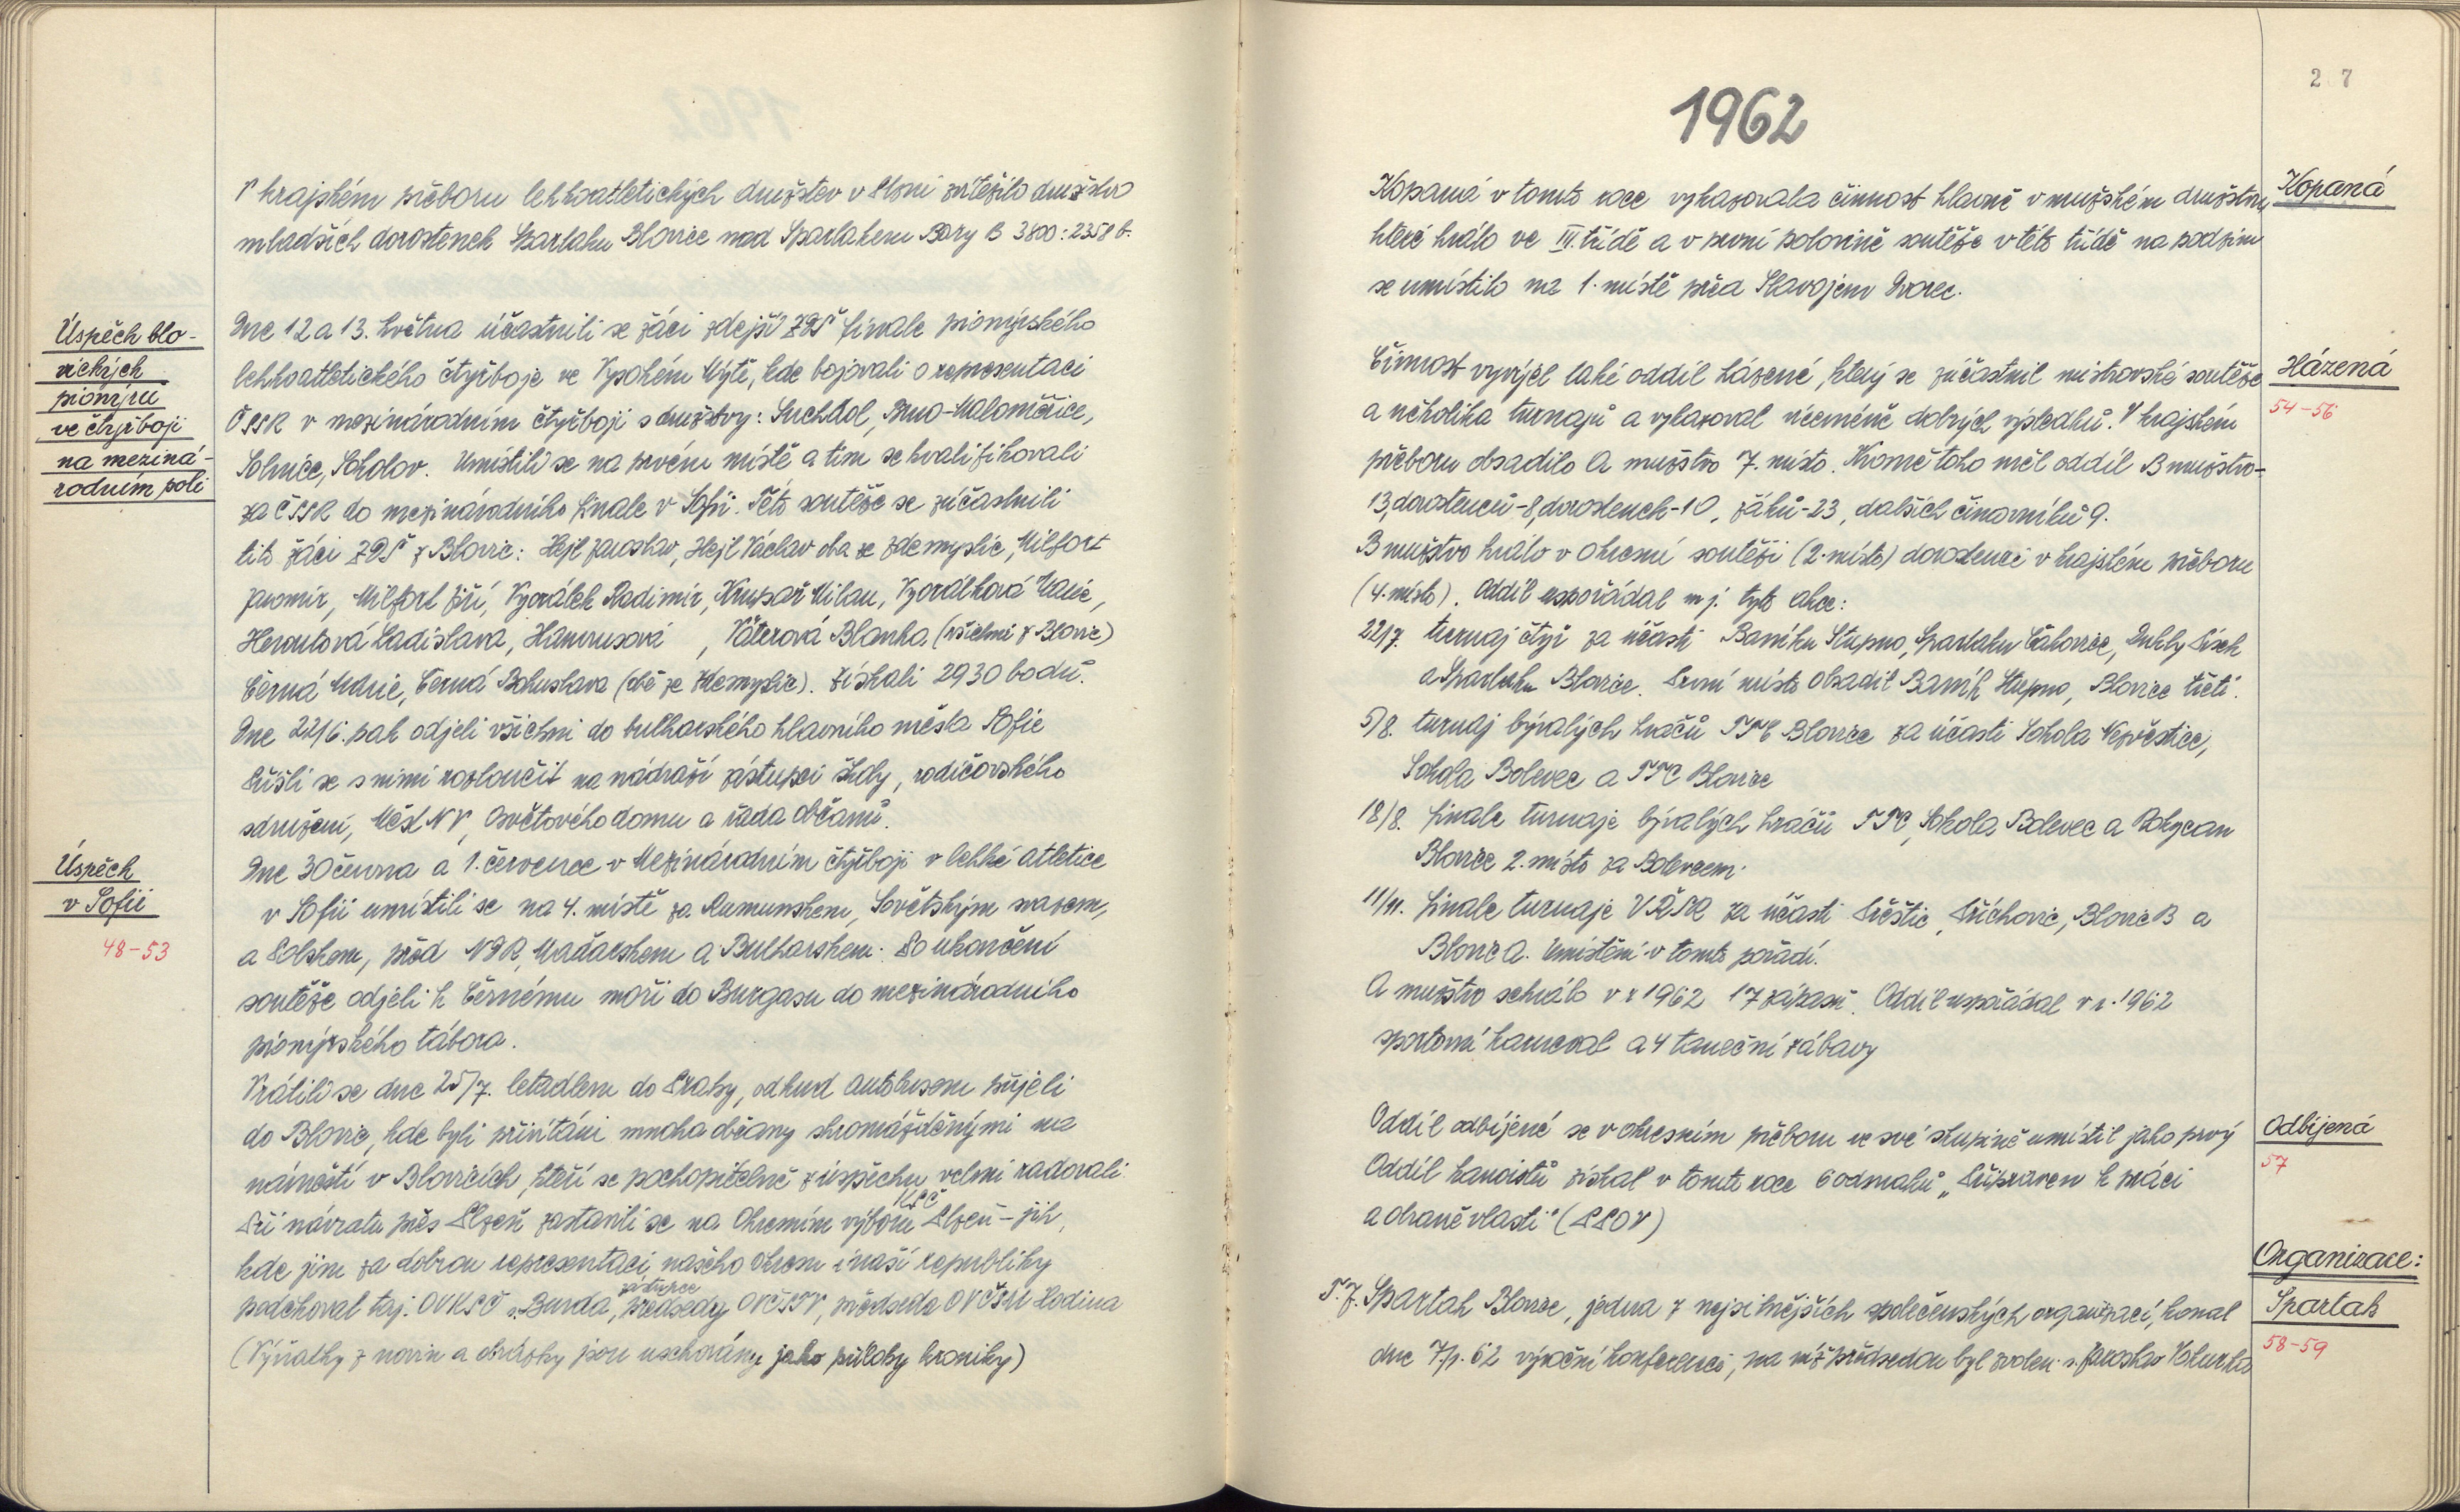 V krajském přeboru lehkoatletických družstev v Plzni zvítězilo družstvo
mladších dorostenek Spartaku Blovice nad Spartakem Bory B 3800:2358 b.
Úspěch blo-
vických
pionýrů
ve čtyřboji
na meziná-
rodním poli
Dne 12 a 13. května účastnili se žáci zdejší ZDŠ finale pionýrského
lehkoatletického čtyřboje ve Vysokém Mýtě, kde bojovali o representaci
ČSSR v mezinárodním čtyřboji s družstvy: Suchdol, Brno-Maloměřice,
Solnice, Sokolov. Umístili se na prvém místě a tím se kvalifikovali
za ČSSR do mezinárodního finale v Sofii. Této soutěže se zúčastnili
tito žáci ZDŠ z Blovic: Hejl Jaroslav, Hejl Václav oba ze Zdemyslic, Milfort
Jaromír, Milfort Jiří, Vyorálek Radimír, Krupař Milan, Vyorálková Marie,
Heroutová Ladislava, Hamrusová , Váterová Blanka, (všichni z Blovic)
Černá Marie, Černá Bohuslava (obě ze Zdemyslic). Získali 2930 bodů.
Dne 22/6. pak odjeli všichni do bulharského hlavního města Sofie
Přišli se s nimi rozloučit na nádraží zástupci školy, rodičovského
sdružení, MěstNV, Osvětového domu a řada občanů.
Úspěch
v Sofii
48-53
Dne 30 června a 1. července v Mezinárodním čtyřboji v lehké atletice
v Sofii umístili se na 4. místě za Rumunskem, Sovětským svazem,
a Polskem, před NDR, Maďarskem a Bulharskem. Po ukončení
soutěže odjeli k Černému moři do Burgasu do mezinárodního
pionýrského tábora.
Vrátili se dne 25/7. letadlem do Prahy, odkud autobusem přijeli
do Blovic, kde byli přivítáni mnoha občany shromážděnými na
náměstí v Blovicích, kteří se pochopitelně z úspěchu velmi radovali.
Při návratu přes Plzeň zastavili se na Okresním výboru KSČ Plzeň-jih,
kde jim za dobrou representaci našeho okresu i naší republiky
poděkoval taj. OVKSČ s. Burda, zástupce předsedy OVČSTV, předseda OVČSM Hodina
(Výňatky z novin a obrázky jsou uschovány jako přílohy kroniky)
27
1962
Kopaná
Kopaná v tomto roce vykazovala činnost hlavně v mužském družstvu
které hrálo ve III. třídě a v první polovině soutěže v této třídě na podzim
se umístilo na 1. místě před Slavojem Dvorec.
Házená
54-56
Činnost vyvíjel také oddíl házené, který se zúčastnil mistrovské soutěže
a několika turnajů a vykazoval víceméně dobrých výsledků. V krajském
přeboru obsadilo A mužstvo 7. místo. Kromě toho měl oddíl B mužstvo-
13, dorostenců-8, dorostenek-10, žáků-23, dalších činovníků 9.
B mužstvo hrálo v okresní soutěži (2. místo) dorostenci v krajském přeboru
(4. místo). Oddíl uspořádal mj. tyto akce:
22/7. turnaj čtyř za účasti Baníku Stupno, Spartaku Čákovice, Dukly Písek
a Spartaku Blovice. První místo obsadil Baník Stupno, Blovice třetí.
5/8. turnaj bývalých hráčů TTC Blovice za účasti Sokola Nezvěstice,
Sokola Bolevec a TTC Blovice
18/8. finale turnaje bývalých hráčů TTC, Sokola Bolevec a Rokycan
Blovice 2. místo za Bolevcem.
11/11. finale turnaje VŘSR za účasti Přeštic, Příchovic, Blovic B a
Blovic A. Umístění v tomto pořadí.
A mužstvo sehrálo v r 1962 17 zápasů. Oddíl uspořádal v r. 1962
sportovní karneval a 4 taneční zábavy
Odbíjená
57
Oddíl odbíjené se v okresním přeboru ve své skupině umístil jako prvý
Oddíl kanoistů získal v tomto roce 6 odznaků „Připraven k práci
a obraně vlasti" (PPOV)
Organizace:
Spartak
58-59
T.J. Spartak Blovice, jedna z nejsilnějších společenských organizací, konal
dne 7/p. 62 výroční konferenci, na níž předsedou byl zvolen s. Jaroslav